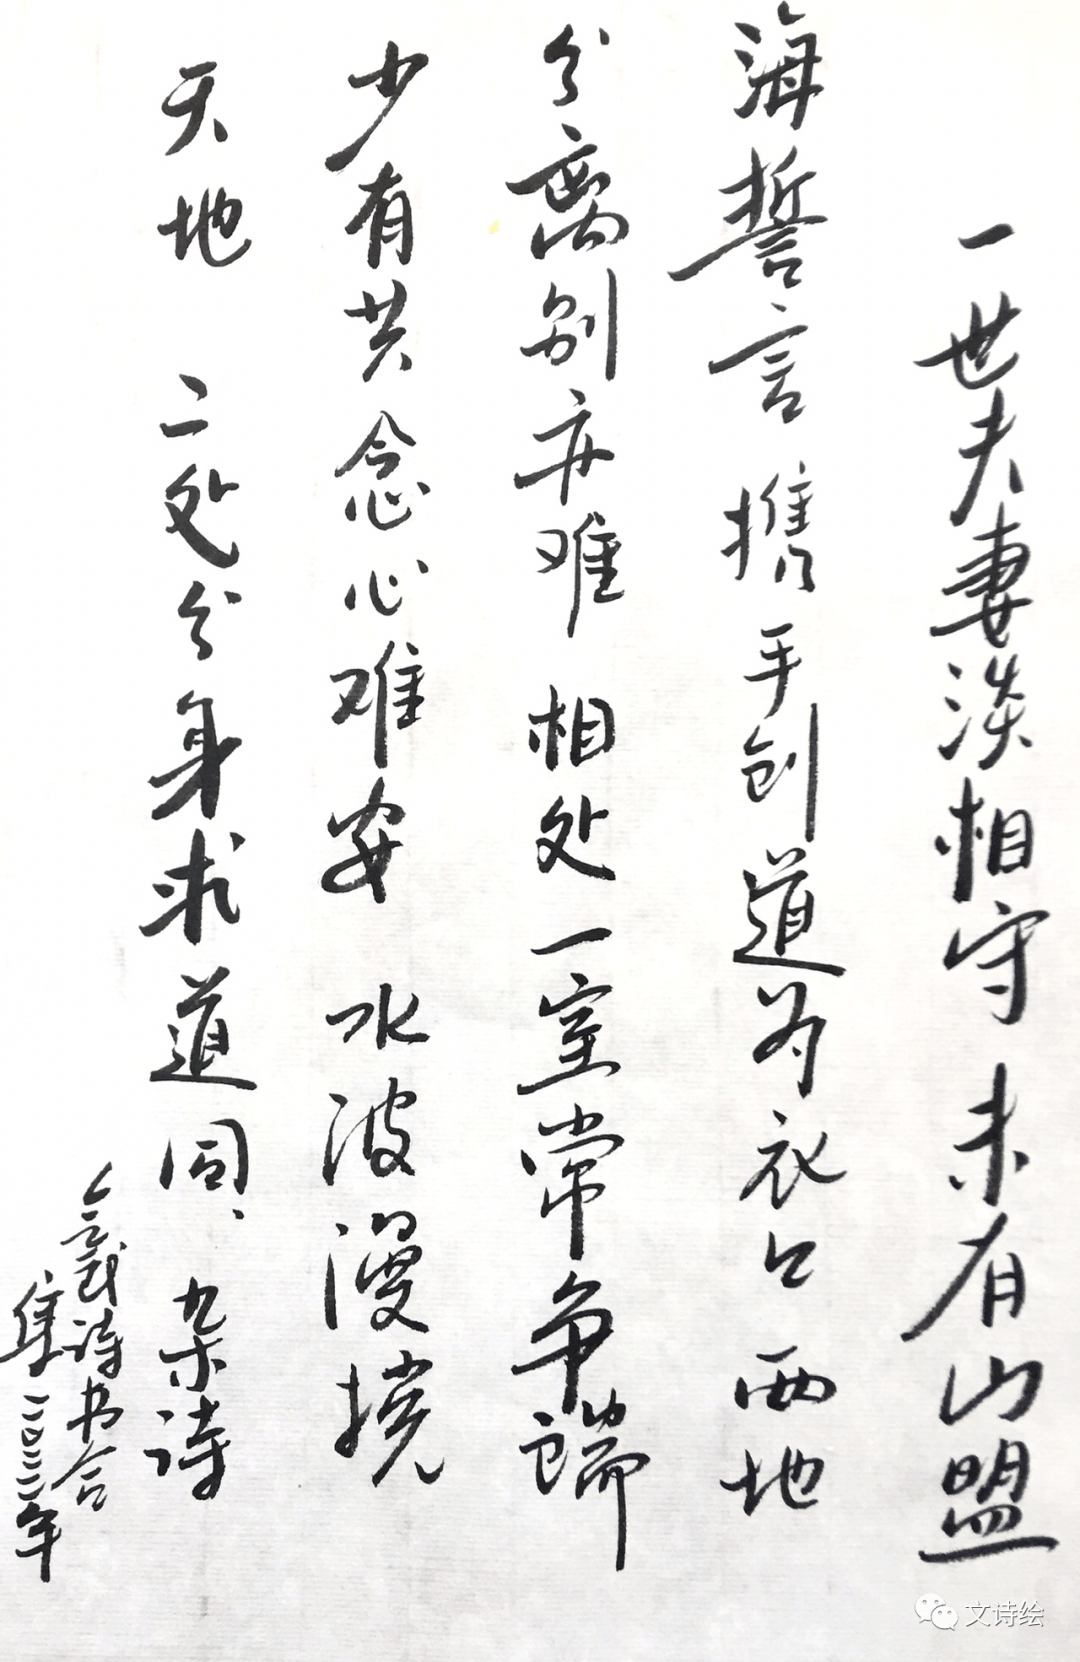 一世夫妻淡相守未有山盟
海誓言携手创道为衣口两地
分离别亦难相处一室常争端
少有共念心难安水波漫挠
天地二处分身求道同、杂诗
义诗书合
集二〇二二年
文诗绘